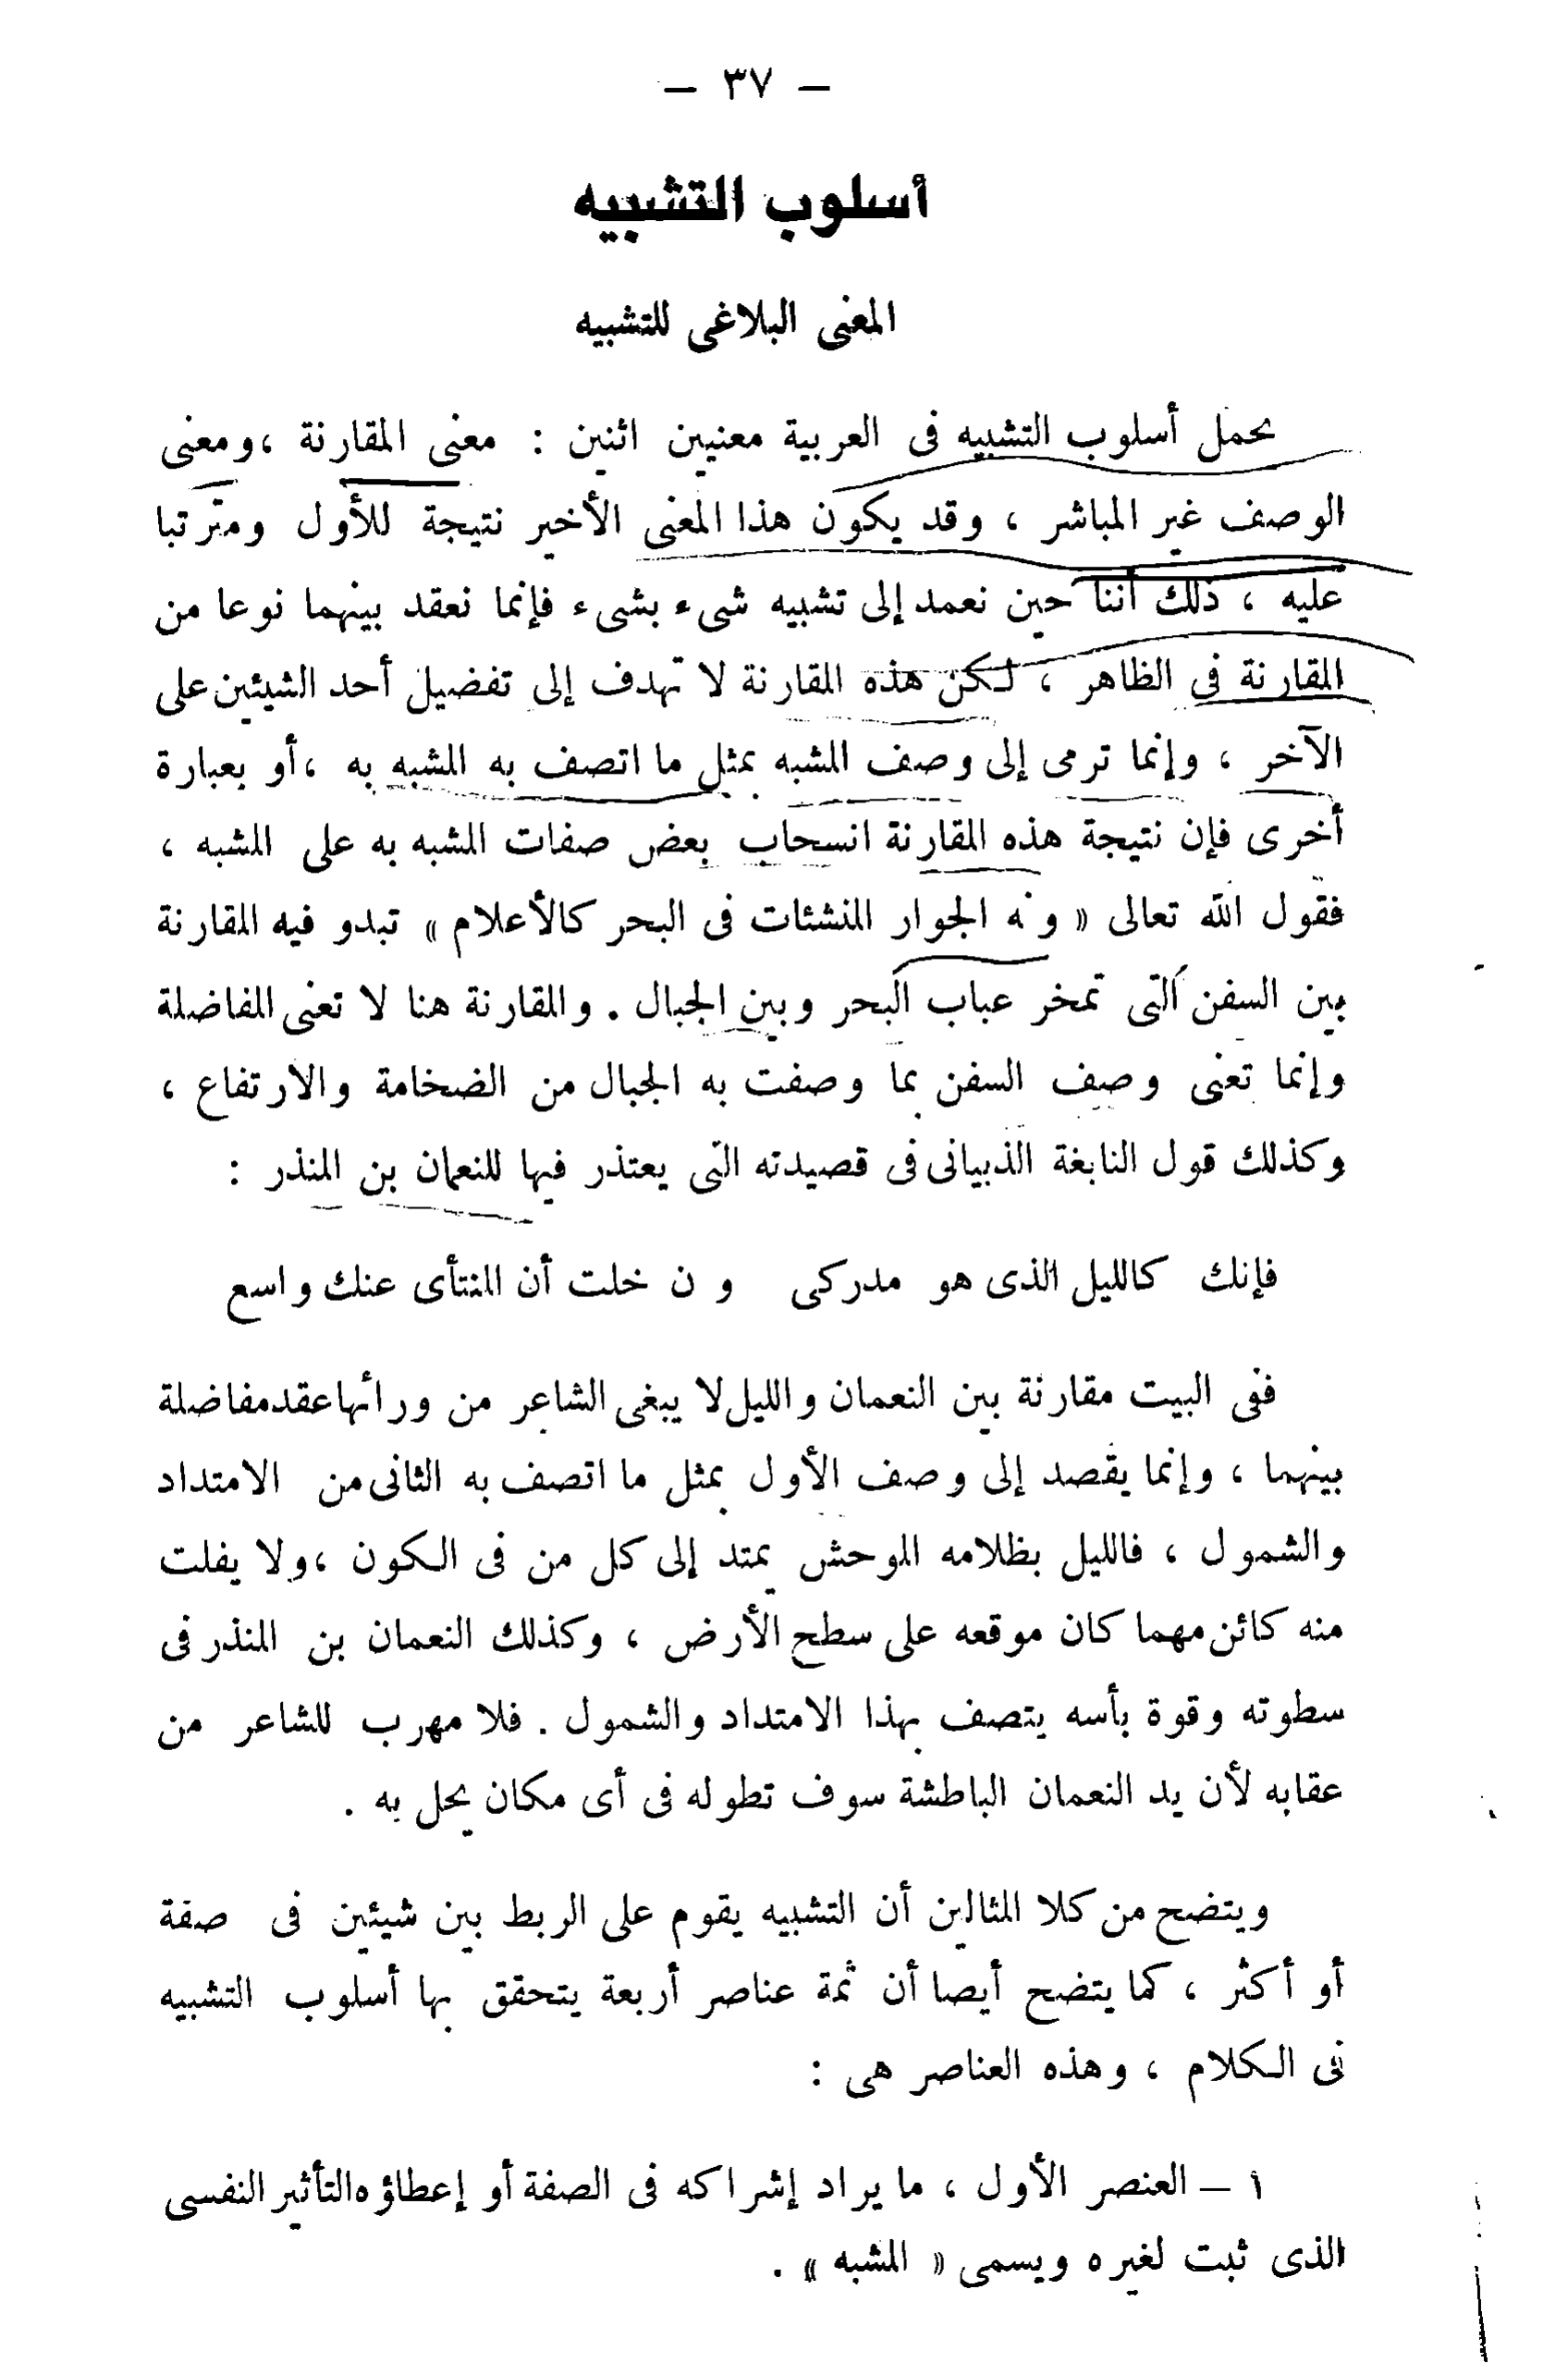 — ٣٧ —
أسلوب التشبيه
المعنى البلاغى للتشبيه
يحمل أسلوب التشبيه فى العربية معنيين اثنين : معنى المقارنة ، ومعنى
الوصف غير المباشر ، وقد يكون هذا المعنى الأخير نتيجة للأول ومترتبا
عليه ، ذلك أننا حين نعمد إلى تشبيه شىء بشىء فإنما نعقد بينهما نوعا من
المقارنة فى الظاهر ، لكن هذه المقارنة لا تهدف إلى تفضيل أحد الشيئين على
الآخر ، وإنما ترمى إلى وصف المشبه بمثل ما اتصف به المشبه به ، أو بعبارة
أخرى فإن نتيجة هذه المقارنة انسحاب بعض صفات المشبه به على المشبه ،
فقول الله تعالى « و ه الجوار المنشئات فى البحر كالأعلام » تبدو فيه المقارنة
بين السفن التى تمخر عباب البحر وبين الجبال . والمقارنة هنا لا تعنى المفاضلة
وإنما تعنى وصف السفن بما وصفت به الجبال من الضخامة والارتفاع ،
وكذلك قول النابغة الذبيانى فى قصيدته التى يعتذر فيها للنعمان بن المنذر :
فإنك كالليل الذى هو مدركى و ن خلت أن المنتأى عنك واسع
ففى البيت مقارنة بين النعمان والليل لا يبغى الشاعر من ورائها عقد مفاضلة
بينهما ، وإنما يقصد إلى وصف الأول بمثل ما اتصف به الثانى من الامتداد
والشمول ، فالليل بظلامه الموحش يمتد إلى كل من فى الكون ، ولا يفلت
منه كائن مهما كان موقعه على سطح الأرض ، وكذلك النعمان بن المنذر فى
سطوته وقوة بأسه يتصف بهذا الامتداد والشمول . فلا مهرب للشاعر من
عقابه لأن يد النعمان الباطشة سوف تطوله فى أى مكان يحل به .
ويتضح من كلا المثالين أن التشبيه يقوم على الربط بين شيئين فى صفة
أو أكثر ، كما يتضح أيصا أن ثمة عناصر أربعة يتحقق بها أسلوب التشبيه
فى الكلام ، وهذه العناصر هى :
١ — العنصر الأول ، ما يراد إشراكه فى الصفة أو إعطاؤه التأثير النفسى
الذى ثبت لغيره ويسمى « المشبه » .